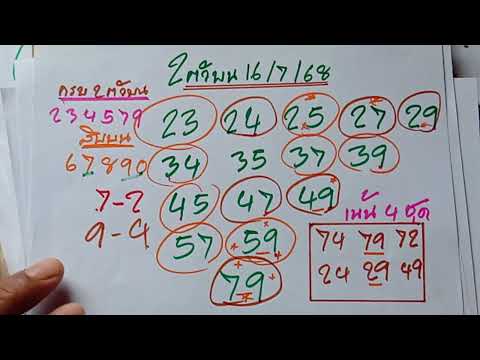 2 ตัวบน 16/7/68
ครบ 2 ตัวบน
234579
23 24 25 27 29
สิบบน
67890
34 35 37 39
7-2
45 47 49
9-4
57 59
79
เน้น 4 ชุด
74 79 72
24 29 49